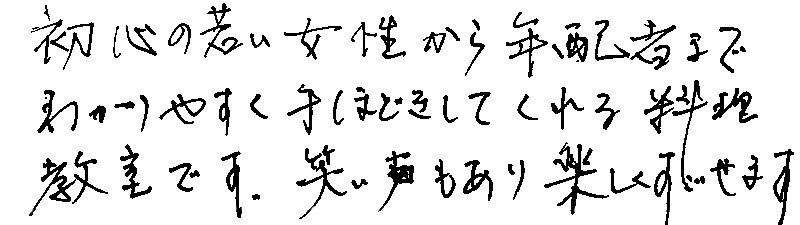 初心の若い女性から年配者まで
わかりやすく手ほどきしてくれる料理
教室です。笑い声もあり楽しくすごせます